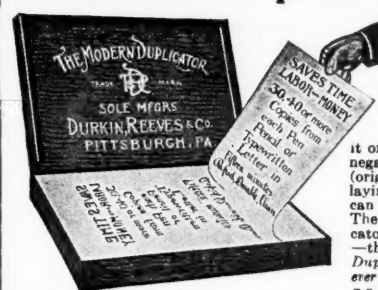 THE MODERN DUPLICATOR
TRADE MARK
SOLE MFGRS
DURKIN, REEVES & CO.
PITTSBURGH, PA.
SAVES TIME
LABOR—MONEY
30, 40 or more
Copies from
each Pen
Pencil or
Typewritten
Letter in
fifteen minutes
SAVES TIME
LABOR—MONEY
30, 40 or more
Copies from
each Pen
Pencil or
Typewritten
Letter in
it or
nega
(orig
laying
can
The
cato
—th
Dup
ever